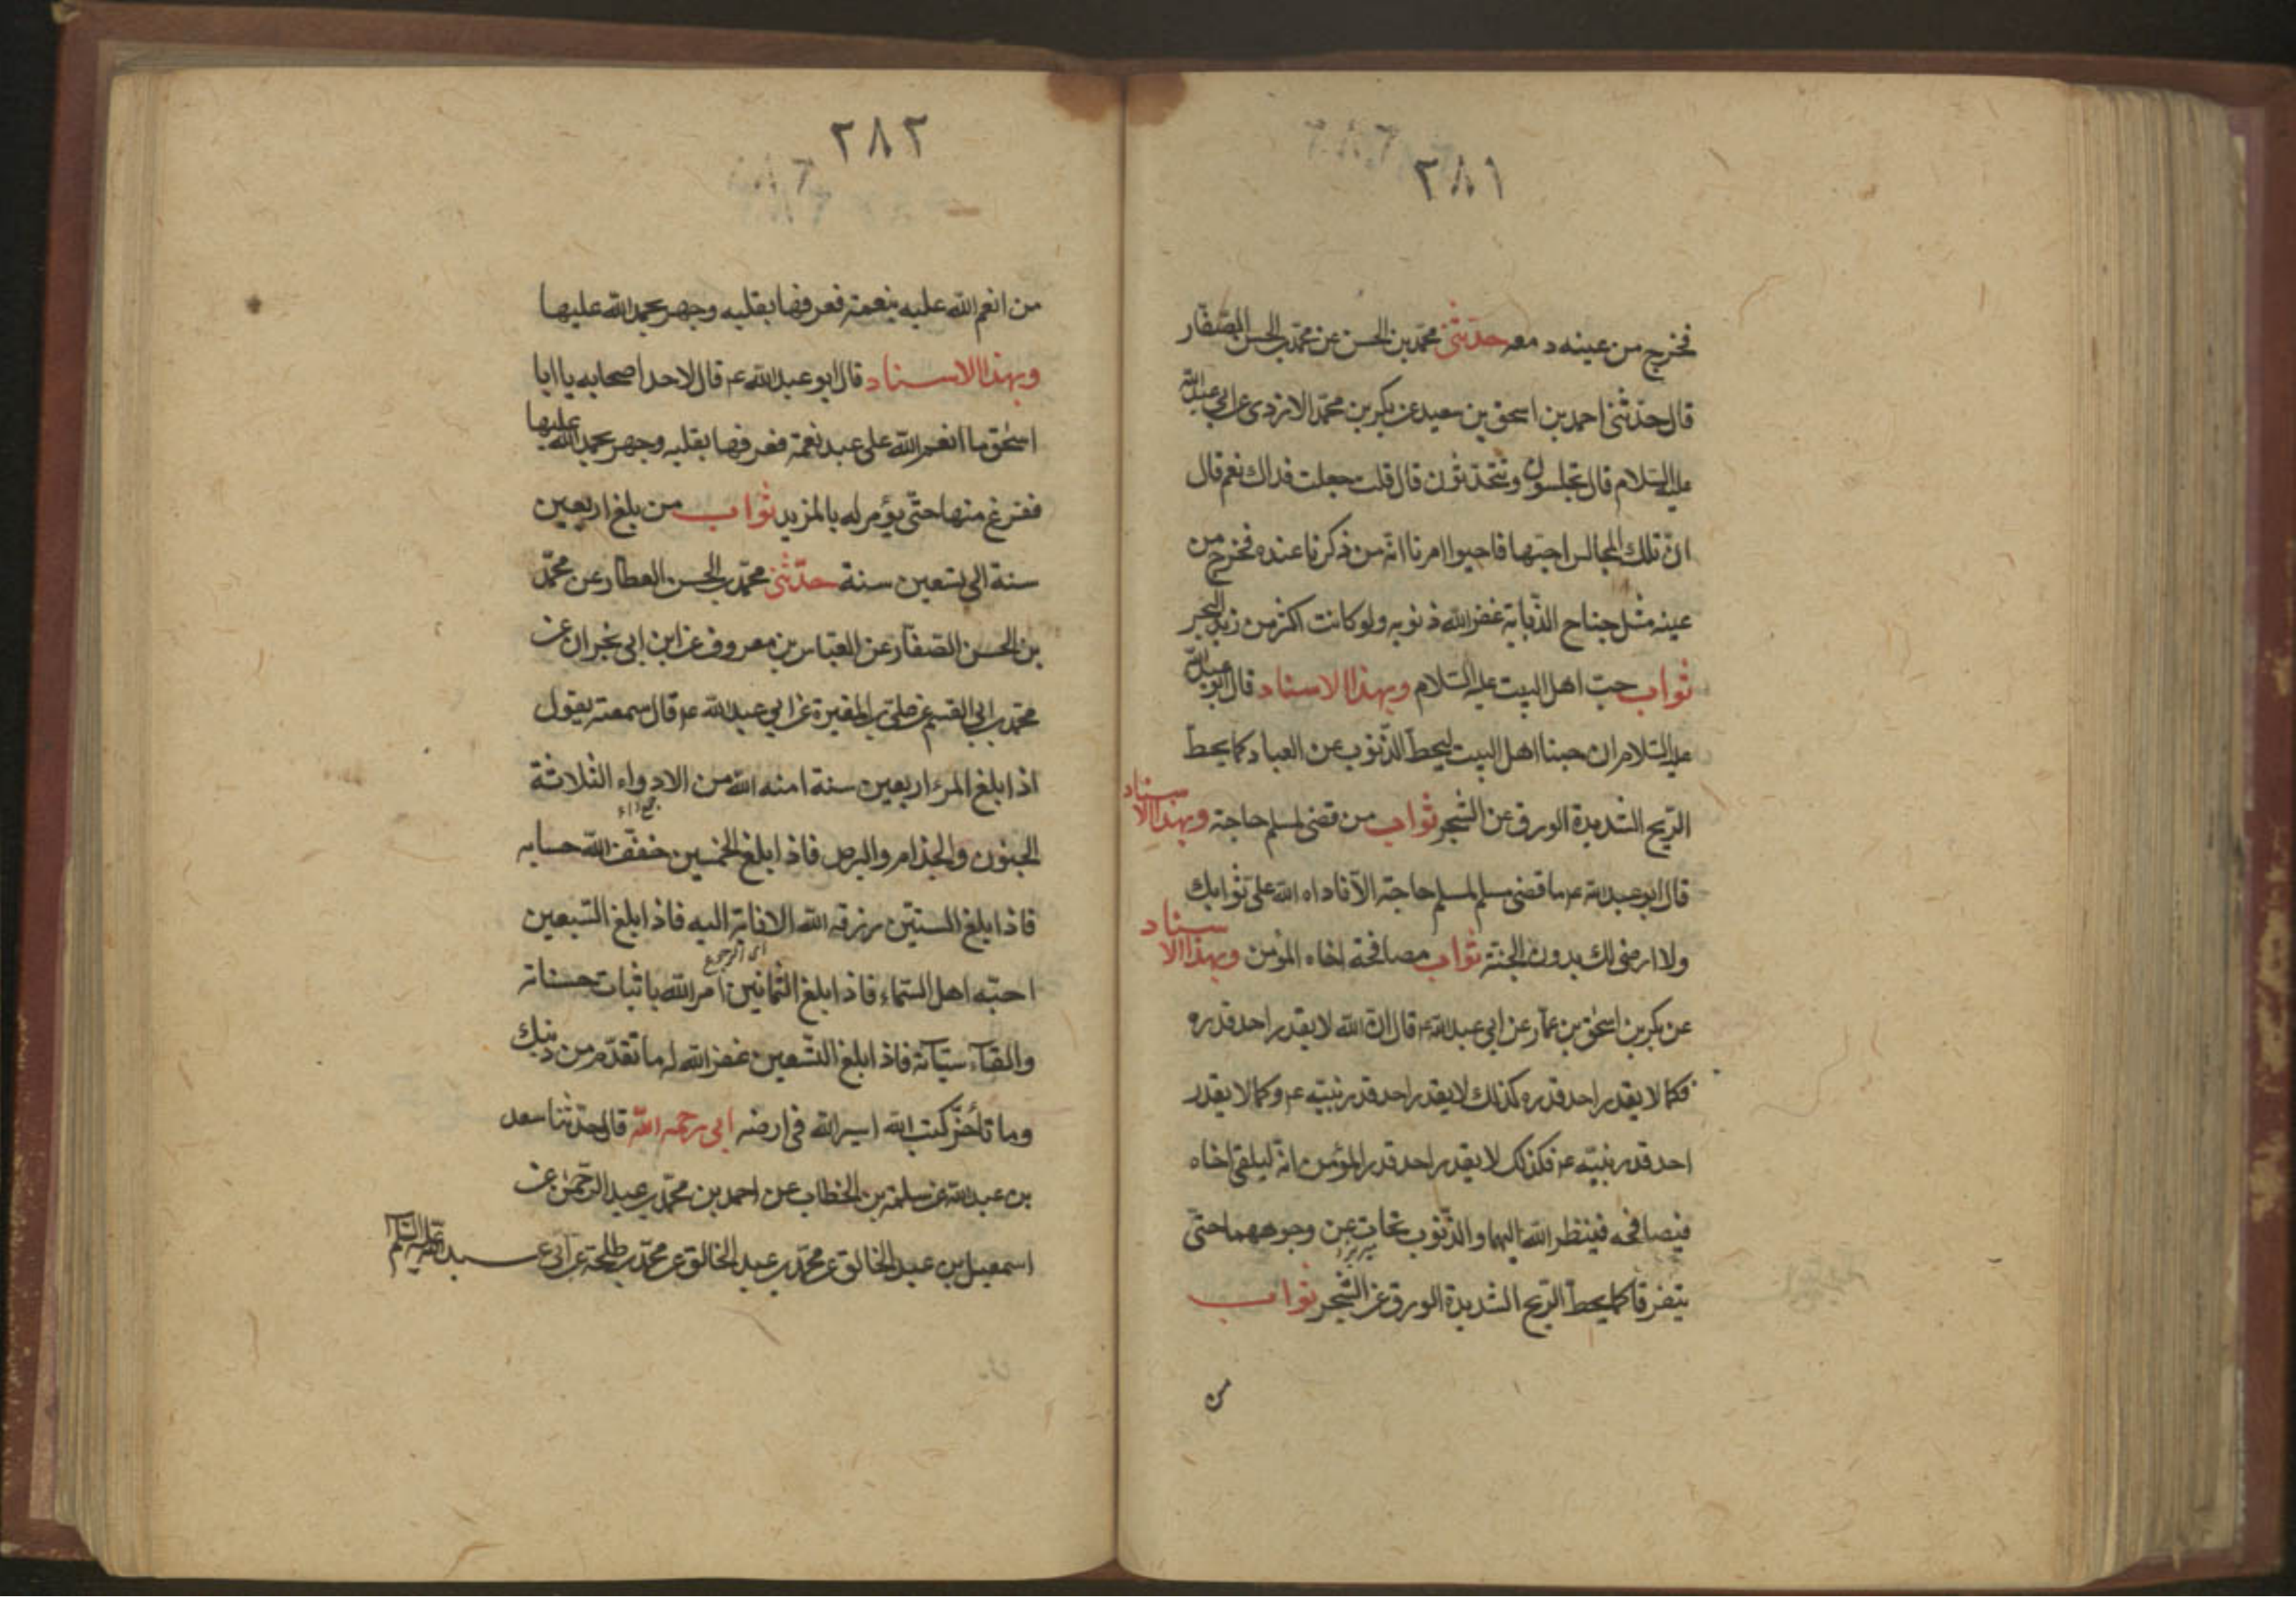 ٢٨١
فخرج من عينه دمعه حدثني محمد بن الحسن عن محمد بن الحسن الصفار
قال حدثني احمد بن اسحق بن سعيد عن بكر بن محمد الازدى عن ابي عبد الله
عليه السلام قال تجلسون وتتحدثون قال قلت جعلت فداك نعم قال
ان تلك المجالس احبها فاحيوا امرنا انه من ذكرنا عنده فخرج من
عينه مثل جناح الذبابة غفر الله ذنوبه ولو كانت اكثر من زبد البحر
ثواب حب اهل البيت عليه السلام وبهذا الاسناد قال ابو عبد الله
عليه السلام ان حبنا اهل البيت ليحط الذنوب عن العباد كما يحط
الريح الشديدة الورق عن الشجر ثواب من قضى لمسلم حاجة وبهذا الاسناد
قال ابو عبد الله ع ما قضى مسلم لمسلم حاجة الا ناداه الله على ثوابك
ولا ارضى لك بدون الجنة ثواب مصافحة اخاه المؤمن وبهذا الاسناد
عن بكر بن اسحق بن عمار عن ابي عبد الله ع قال ان الله لا يقدر احد قدره
فكما لا يقدر احد قدره كذلك لا يقدر احد قدر نبيه ع وكما لا يقدر
احد قدر نبيه ع فكذلك لا يقدر احد قدر المؤمن انه ليلقى اخاه
فيصافحه فينظر الله اليهما والذنوب تحات عن وجوههما حتى
يتفرقا كما يحط الريح الشديدة الورق عن الشجر ثواب
من
٢٨٢
من انعم الله عليه بنعمة فعرفها بقلبه وجهر بحمد الله عليها
وبهذا الاسناد قال ابو عبد الله ع قال لاحد اصحابه يا ابا
اسحق ما انعم الله على عبد نعمة فعرفها بقلبه وجهر بحمد الله عليها
ففرغ منها حتى يؤمر له بالمزيد ثواب من بلغ اربعين
سنة الى تسعين سنة حدثني محمد بن الحسن العطار عن محمد
بن الحسن الصفار عن العباس بن معروف عن ابن ابي نجران عن
محمد بن ابي القسم عن علي بن المغيرة عن ابي عبد الله ع قال سمعته يقول
اذا بلغ المرء اربعين سنة امنه الله من الادواء الثلاثة
جمع داء
الجنون والجذام والبرص فاذا بلغ الخمسين خفف الله حسابه
فاذا بلغ الستين رزقه الله الانابة اليه فاذا بلغ السبعين
اى الرجوع
احبه اهل السماء فاذا بلغ الثمانين امر الله باثبات حسناته
والقاء سيآته فاذا بلغ التسعين غفر الله له ما تقدم من ذنبك
وما تأخر وكتب الله اسير الله فى ارضه ابى رحمه الله قال حدثنا سعد
بن عبد الله عن سلمة بن الخطاب عن احمد بن محمد بن عبد الرحمن عن
اسمعيل بن عبد الخالق عن محمد بن عبد الخالق عن محمد بن طلحة عن ابى عبد الله عليه السلام